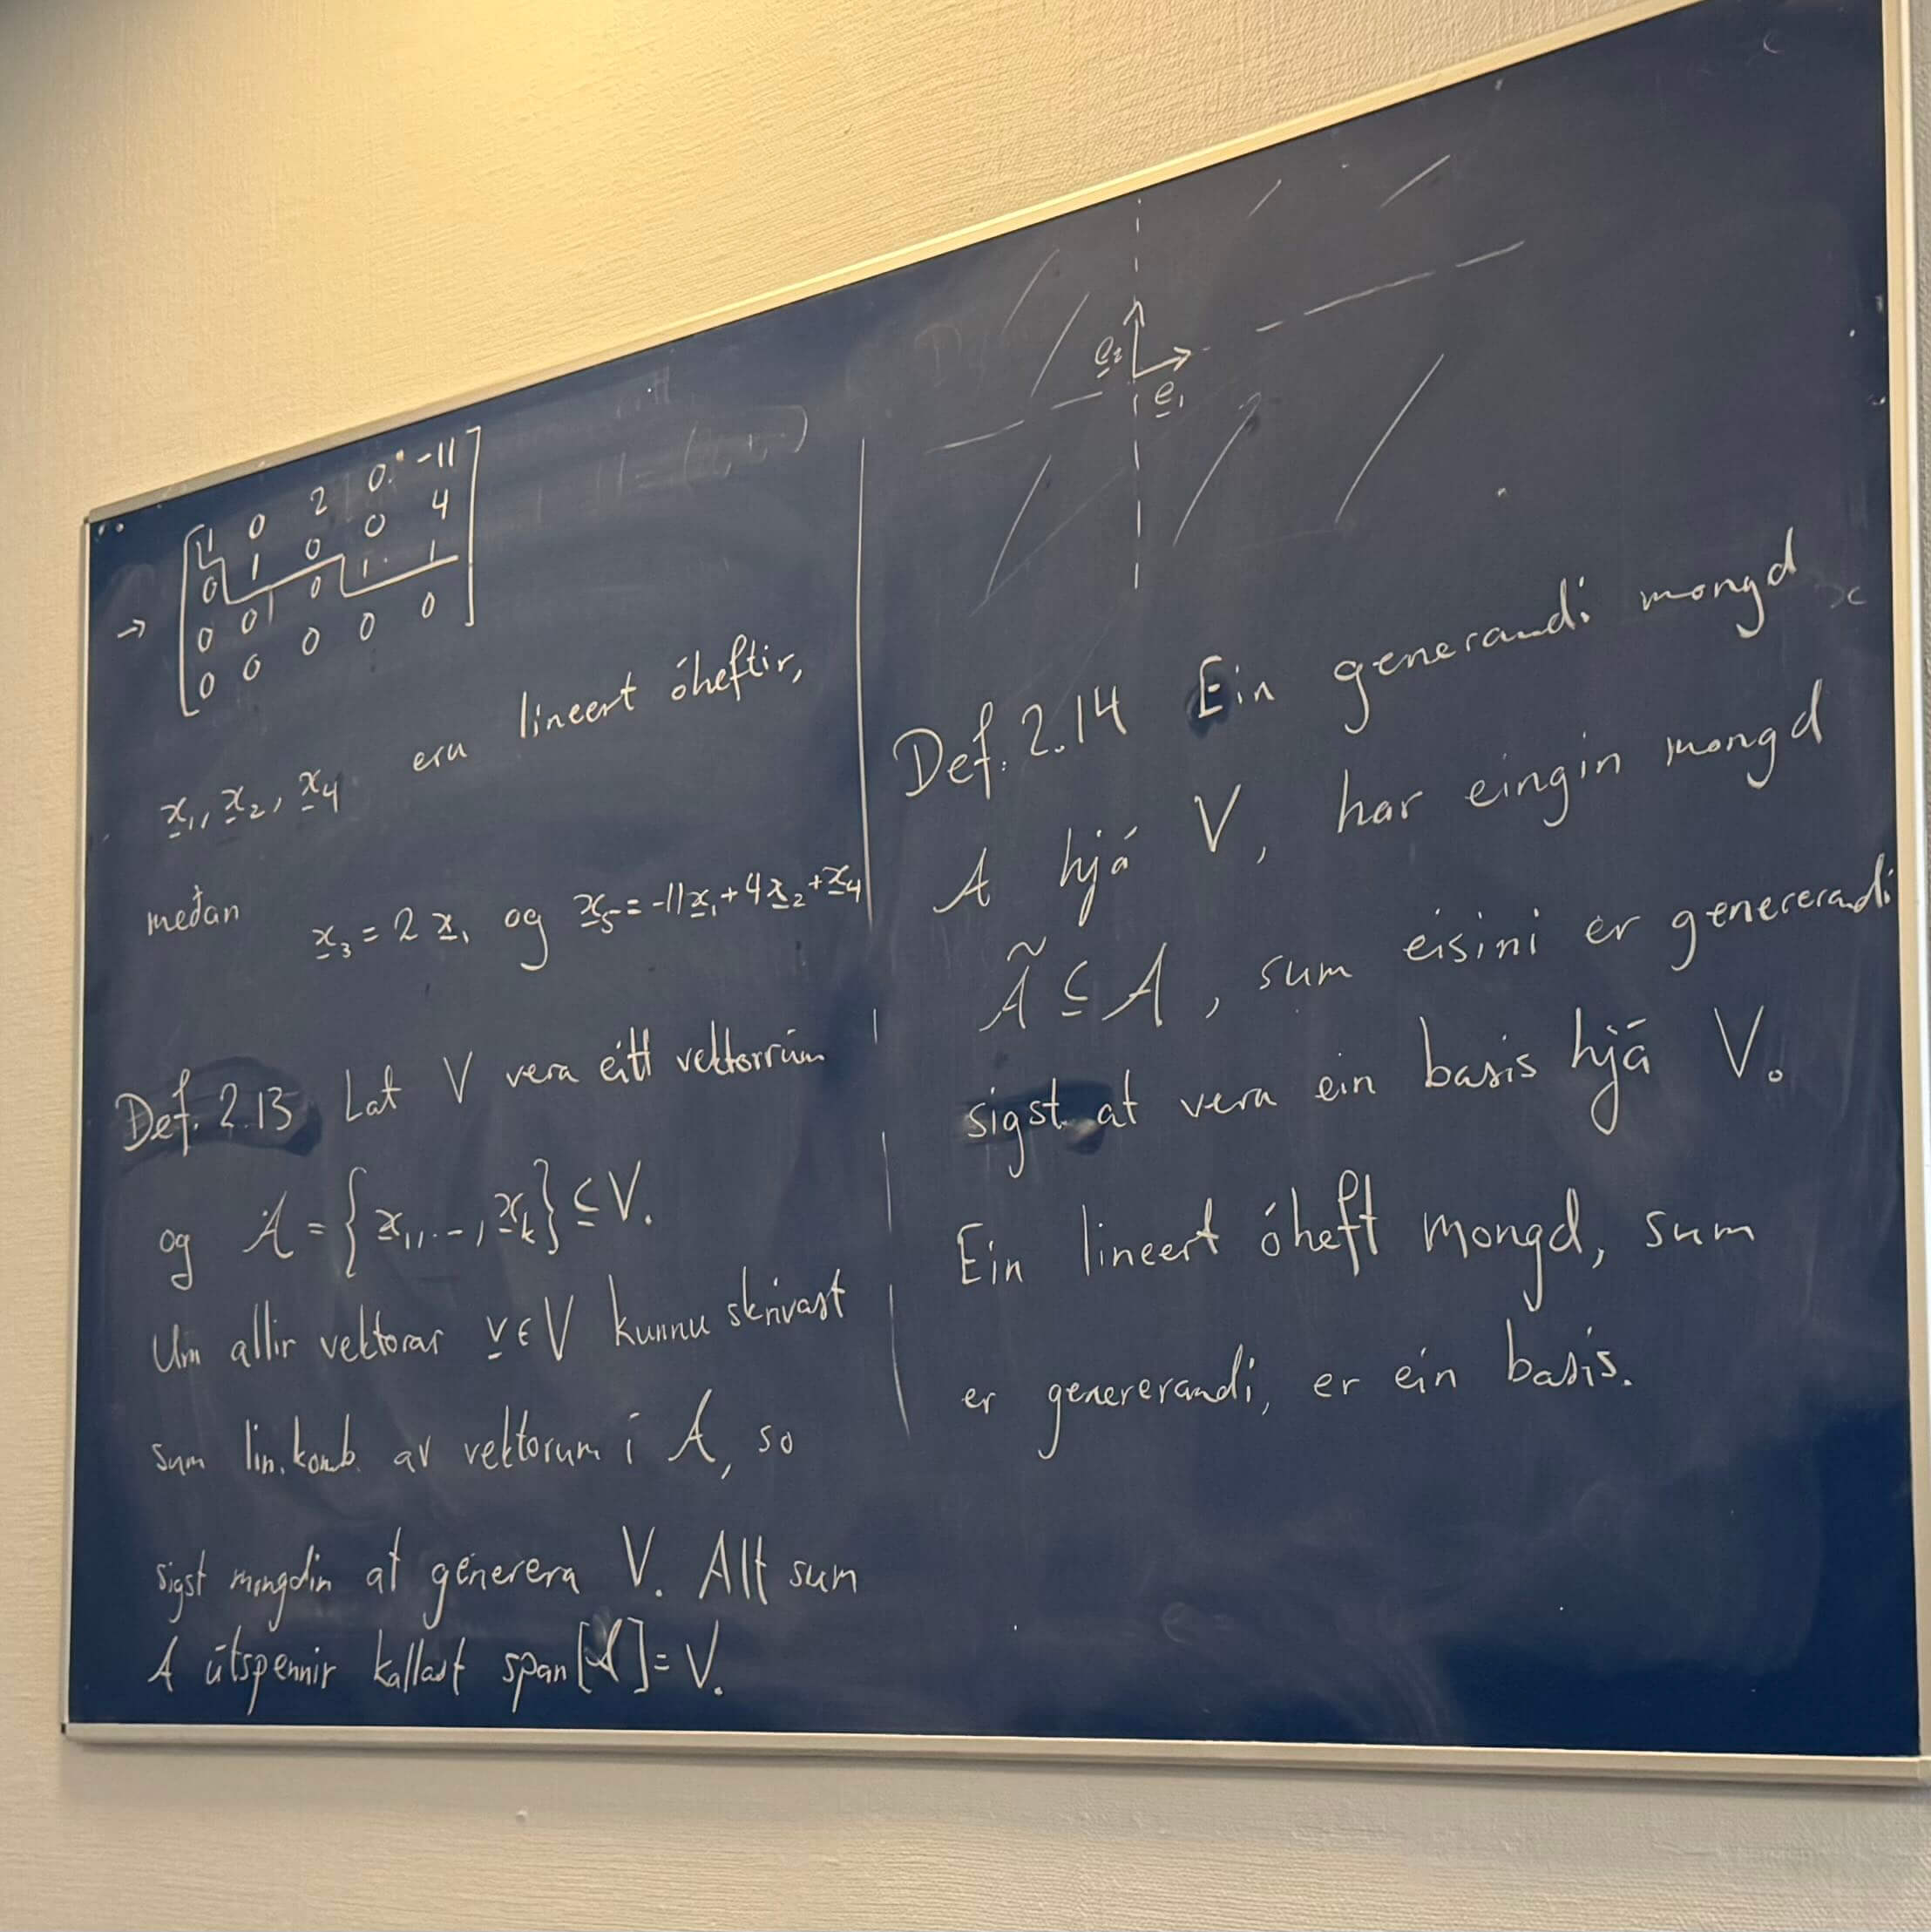 → [1 0 2 0 -11
0 1 0 0 4
0 0 0 1 1
0 0 0 0 0]
x̲₁, x̲₂, x̲₄ eru lineert óheftir,
meðan x̲₃ = 2x̲₁ og x̲₅ = -11x̲₁ + 4x̲₂ + x̲₄
Def. 2.13 Lat V vera eitt vektorrúm
og A = {x̲₁, .-, x̲ₖ} ⊆ V.
Um allir vektorar v̲ ∈ V kunnu skrivast
sum lin. komb. av vektorum í A, so
sigst mongdin at generera V. Alt sum
A útspennir kallast span[A] = V.
e̲₂
e̲₁
Def. 2.14 Ein generandi mongd
A hjá V, har eingin mongd
Ã ⊆ A, sum eisini er genererandi
sigst at vera ein basis hjá V.
Ein lineert óheft mongd, sum
er genererandi, er ein basis.